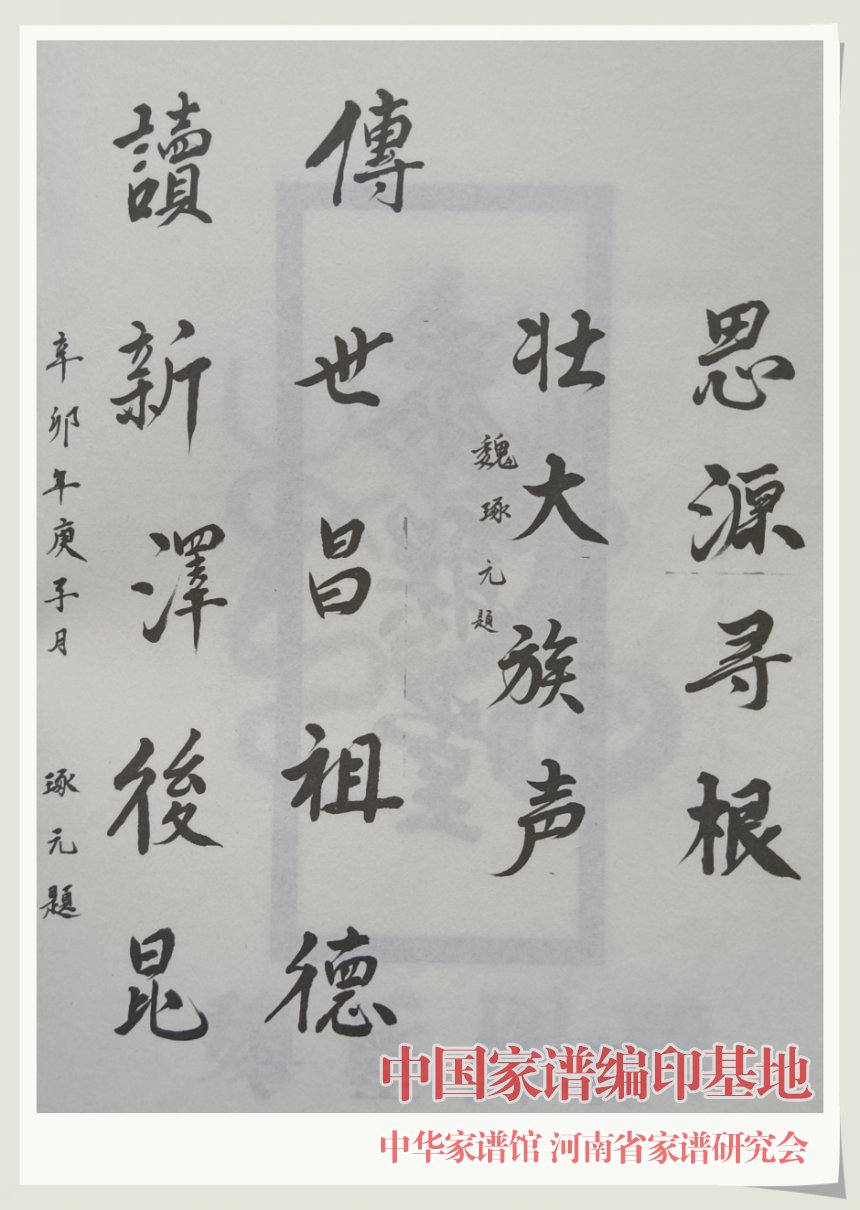 思源寻根
壮大族声
魏琢元題
傳世昌祖德
讀新澤後昆
辛卯年庚子月
琢元題
中国家谱编印基地
中华家谱馆 河南省家谱研究会